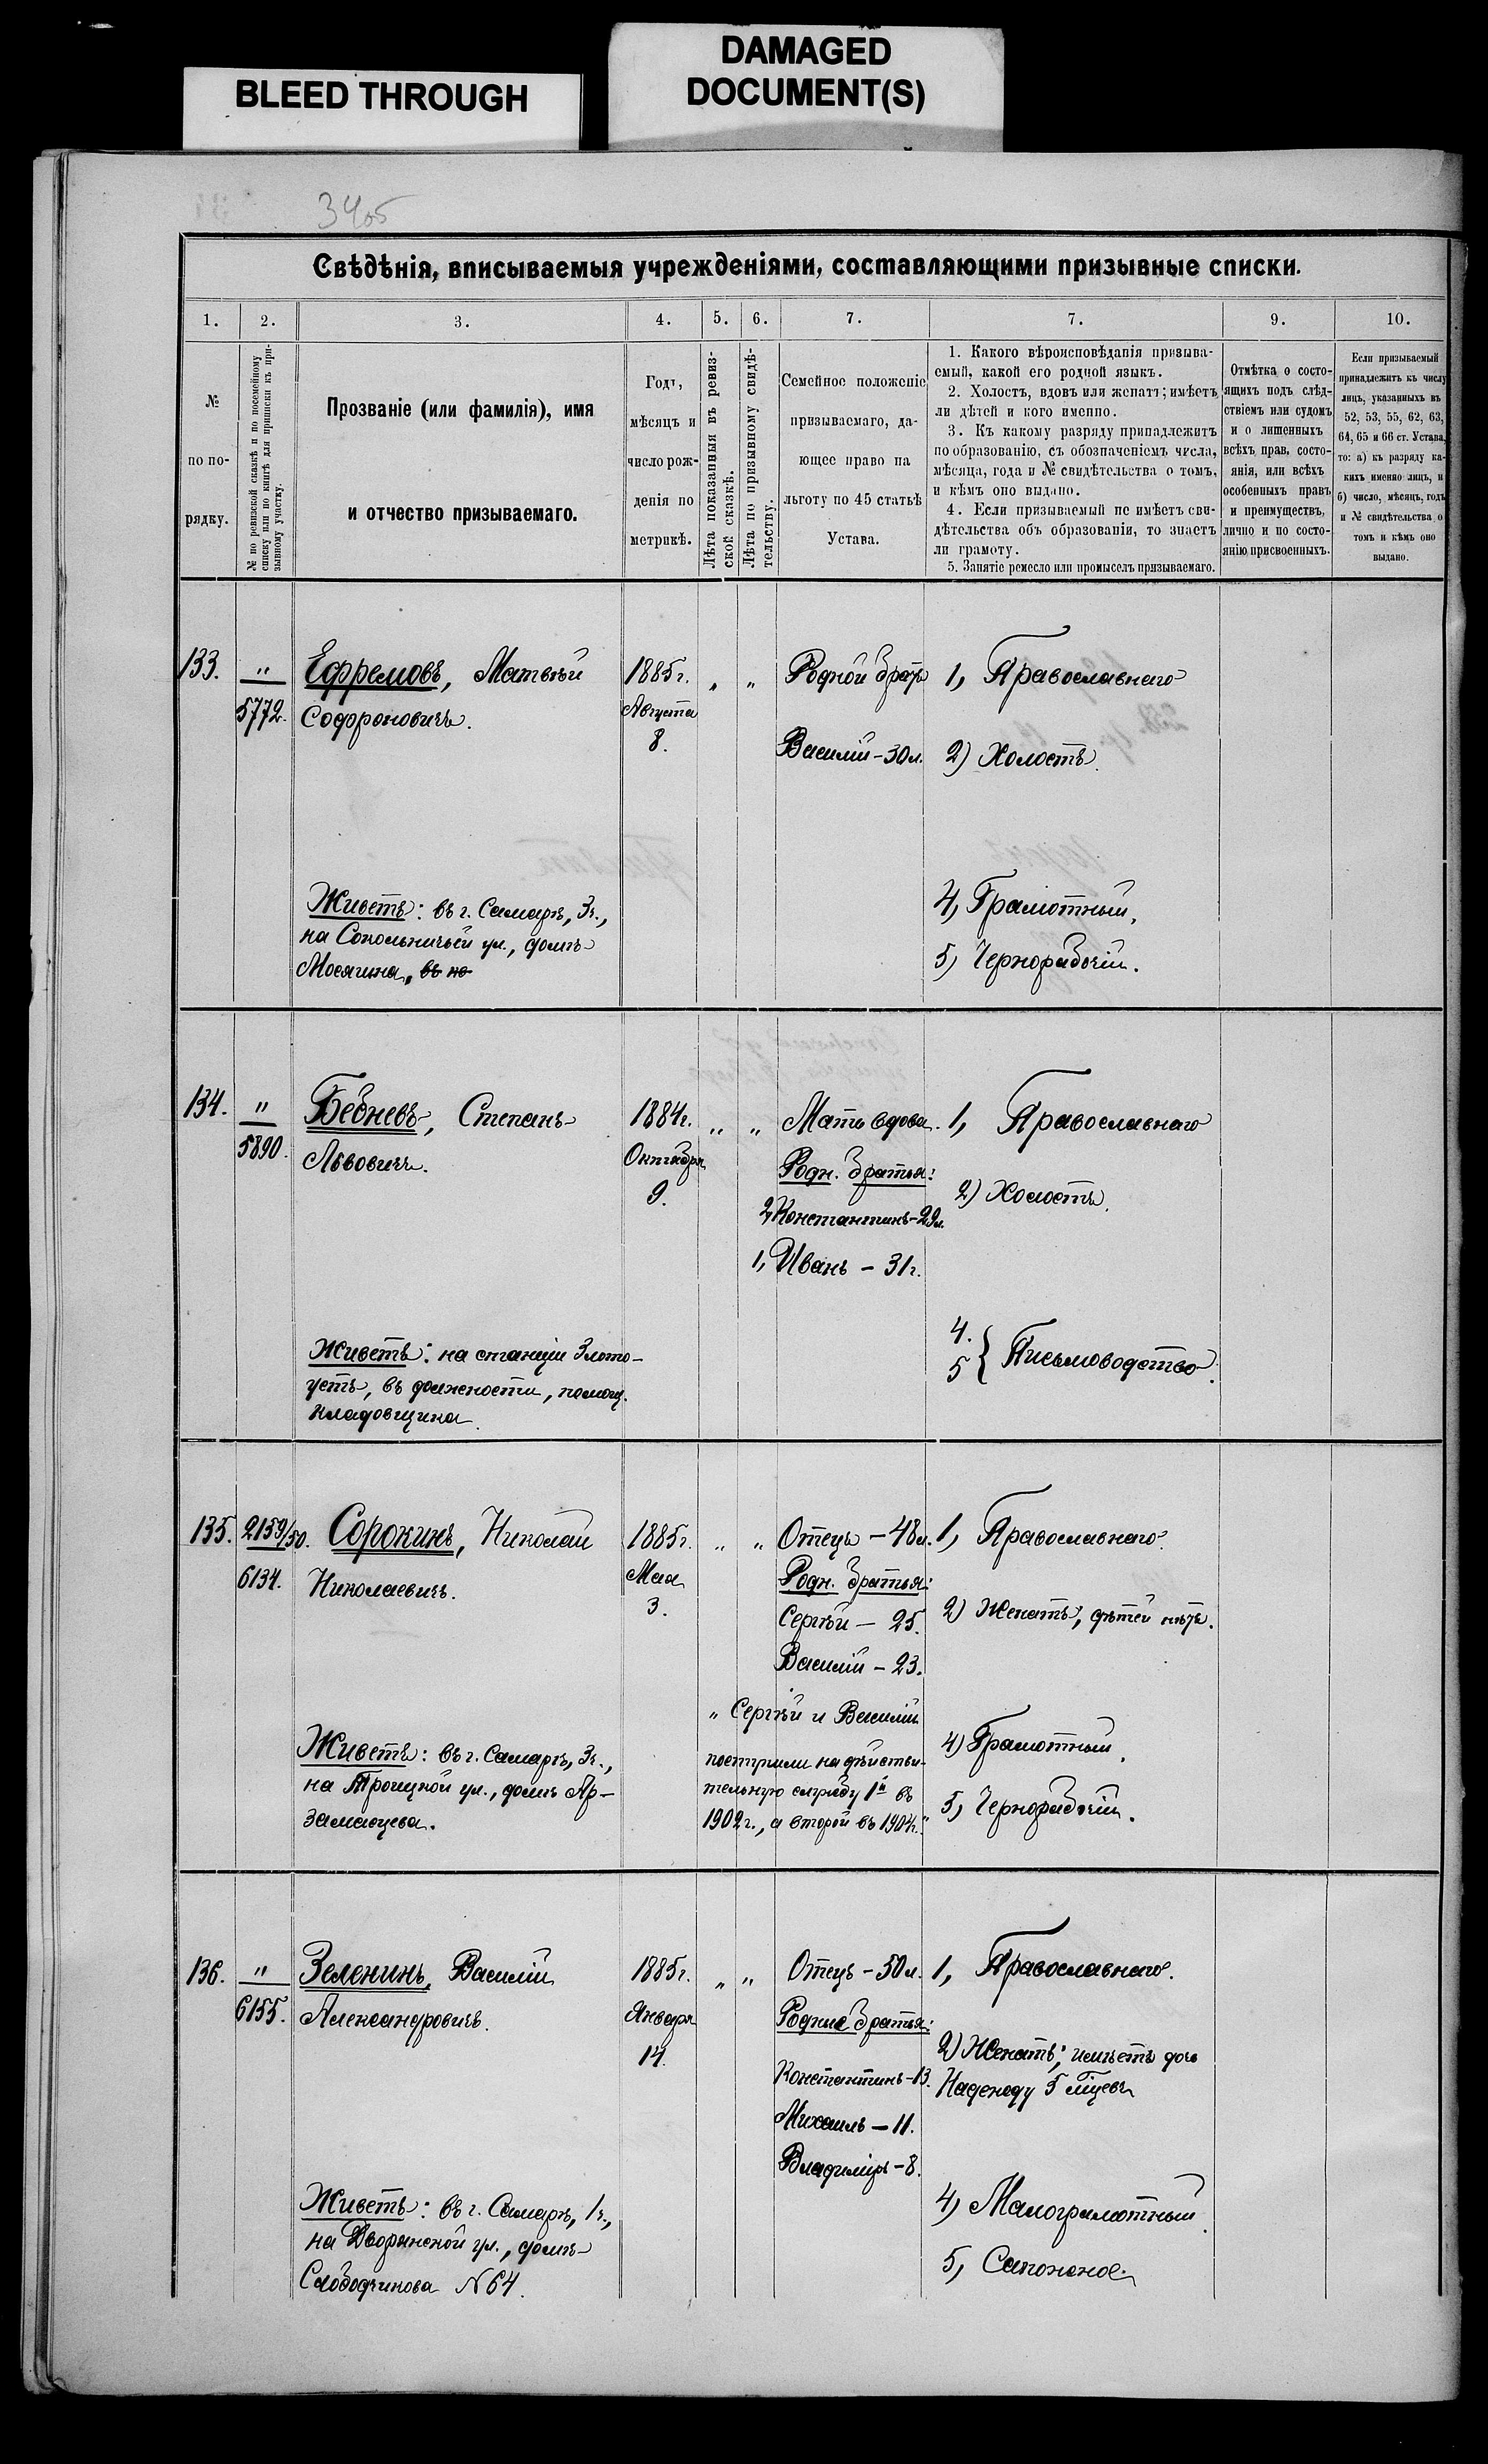 BLEED THROUGH
DAMAGED
DOCUMENT(S)
34об
Свѣдѣнія, вписываемыя учрежденіями, составляющими призывные списки.
1. 2. 3. 4. 5. 6. 7. 7. 9. 10.
№
по по-
рядку.
№ по ревизской сказкѣ и по посемейному
списку или по книгѣ для приписки къ при-
зывному участку.
Прозваніе (или фамилія), имя
и отчество призываемаго.
Годъ,
мѣсяцъ и
число рож-
денія по
метрикѣ.
Лѣта показанныя въ ревиз-
ской сказкѣ.
Лѣта по призывному свидѣ-
тельству.
Семейное положеніе
призываемаго, да-
ющее право на
льготу по 45 статьѣ
Устава.
1. Какого вѣроисповѣданія призыва-
емый, какой его родной языкъ.
2. Холостъ, вдовъ или женатъ; имѣетъ
ли дѣтей и кого именно.
3. Къ какому разряду принадлежитъ
по образованію, съ обозначеніемъ числа,
мѣсяца, года и № свидѣтельства о томъ,
и кѣмъ оно выдано.
4. Если призываемый не имѣетъ сви-
дѣтельства объ образованіи, то знаетъ
ли грамоту.
5. Занятіе ремесло или промыселъ призываемаго.
Отмѣтка о состо-
ящихъ подъ слѣд-
ствіемъ или судомъ
и о лишенныхъ
всѣхъ правъ состо-
янія, или всѣхъ
особенныхъ правъ
и преимуществъ,
лично и по состо-
янію присвоенныхъ.
Если призываемый
принадлежитъ къ числу
лицъ, указанныхъ въ
52, 53, 55, 62, 63,
64, 65 и 66 ст. Устава,
то: а) къ разряду ка-
кихъ именно лицъ, и
б) число, мѣсяцъ, годъ
и № свидѣтельства о
томъ и кѣмъ оно
выдано.
133. " Ефремовъ, Матвѣй 1885г. " " Родной братъ 1, Православнаго
5772. Софроновичъ. Августа
8. Василій - 30 л. 2) Холостъ.
Живетъ: въ г. Самарѣ, 3ч.,
на Сокольничьей ул., домъ
Мосягина, въ но
4, Грамотный,
5, Чернорабочій.
134. " Бебневъ, Степанъ 1884г. " " Мать вдова. 1, Православнаго
5890. Львовичъ. Октября Родн. братья:
9. 2) Холостъ.
2, Константинъ - 29 л.
1, Иванъ - 31 г.
Живетъ: на станціи Злато-
устъ, въ должности, помощ.
кладовщика.
4.
5 { Письмоводство.
135. 2159/50. Сорокинъ, Николай 1885г. " " Отецъ - 48 л. 1, Православнаго.
6134. Николаевичъ. Мая Родн. братья:
3. Сергѣй - 25. 2) Женатъ, дѣтей нѣтъ.
Василій - 23.
" Сергѣй и Василій
поступили на дѣйстви-
тельную службу 1й въ
1902 г., а второй въ 1904 г."
Живетъ: въ г. Самарѣ, 3ч.,
на Троицкой ул., домъ Ар-
замасцева.
4) Грамотный.
5, Чернорабочій.
136. " Зеленинъ, Василій 1885г. " " Отецъ - 50 л. 1, Православнаго.
6155. Александровичъ. Января Родные братья:
14.
Константинъ - 13.
Михаилъ - 11.
Владиміръ - 8.
2) Женатъ, имѣетъ дочь
Надежду 5 мѣсяц
Живетъ: въ г. Самарѣ, 1ч.,
на Дворянской ул., домъ
Слободчикова №64.
4, Малограмотный.
5, Сапожное.